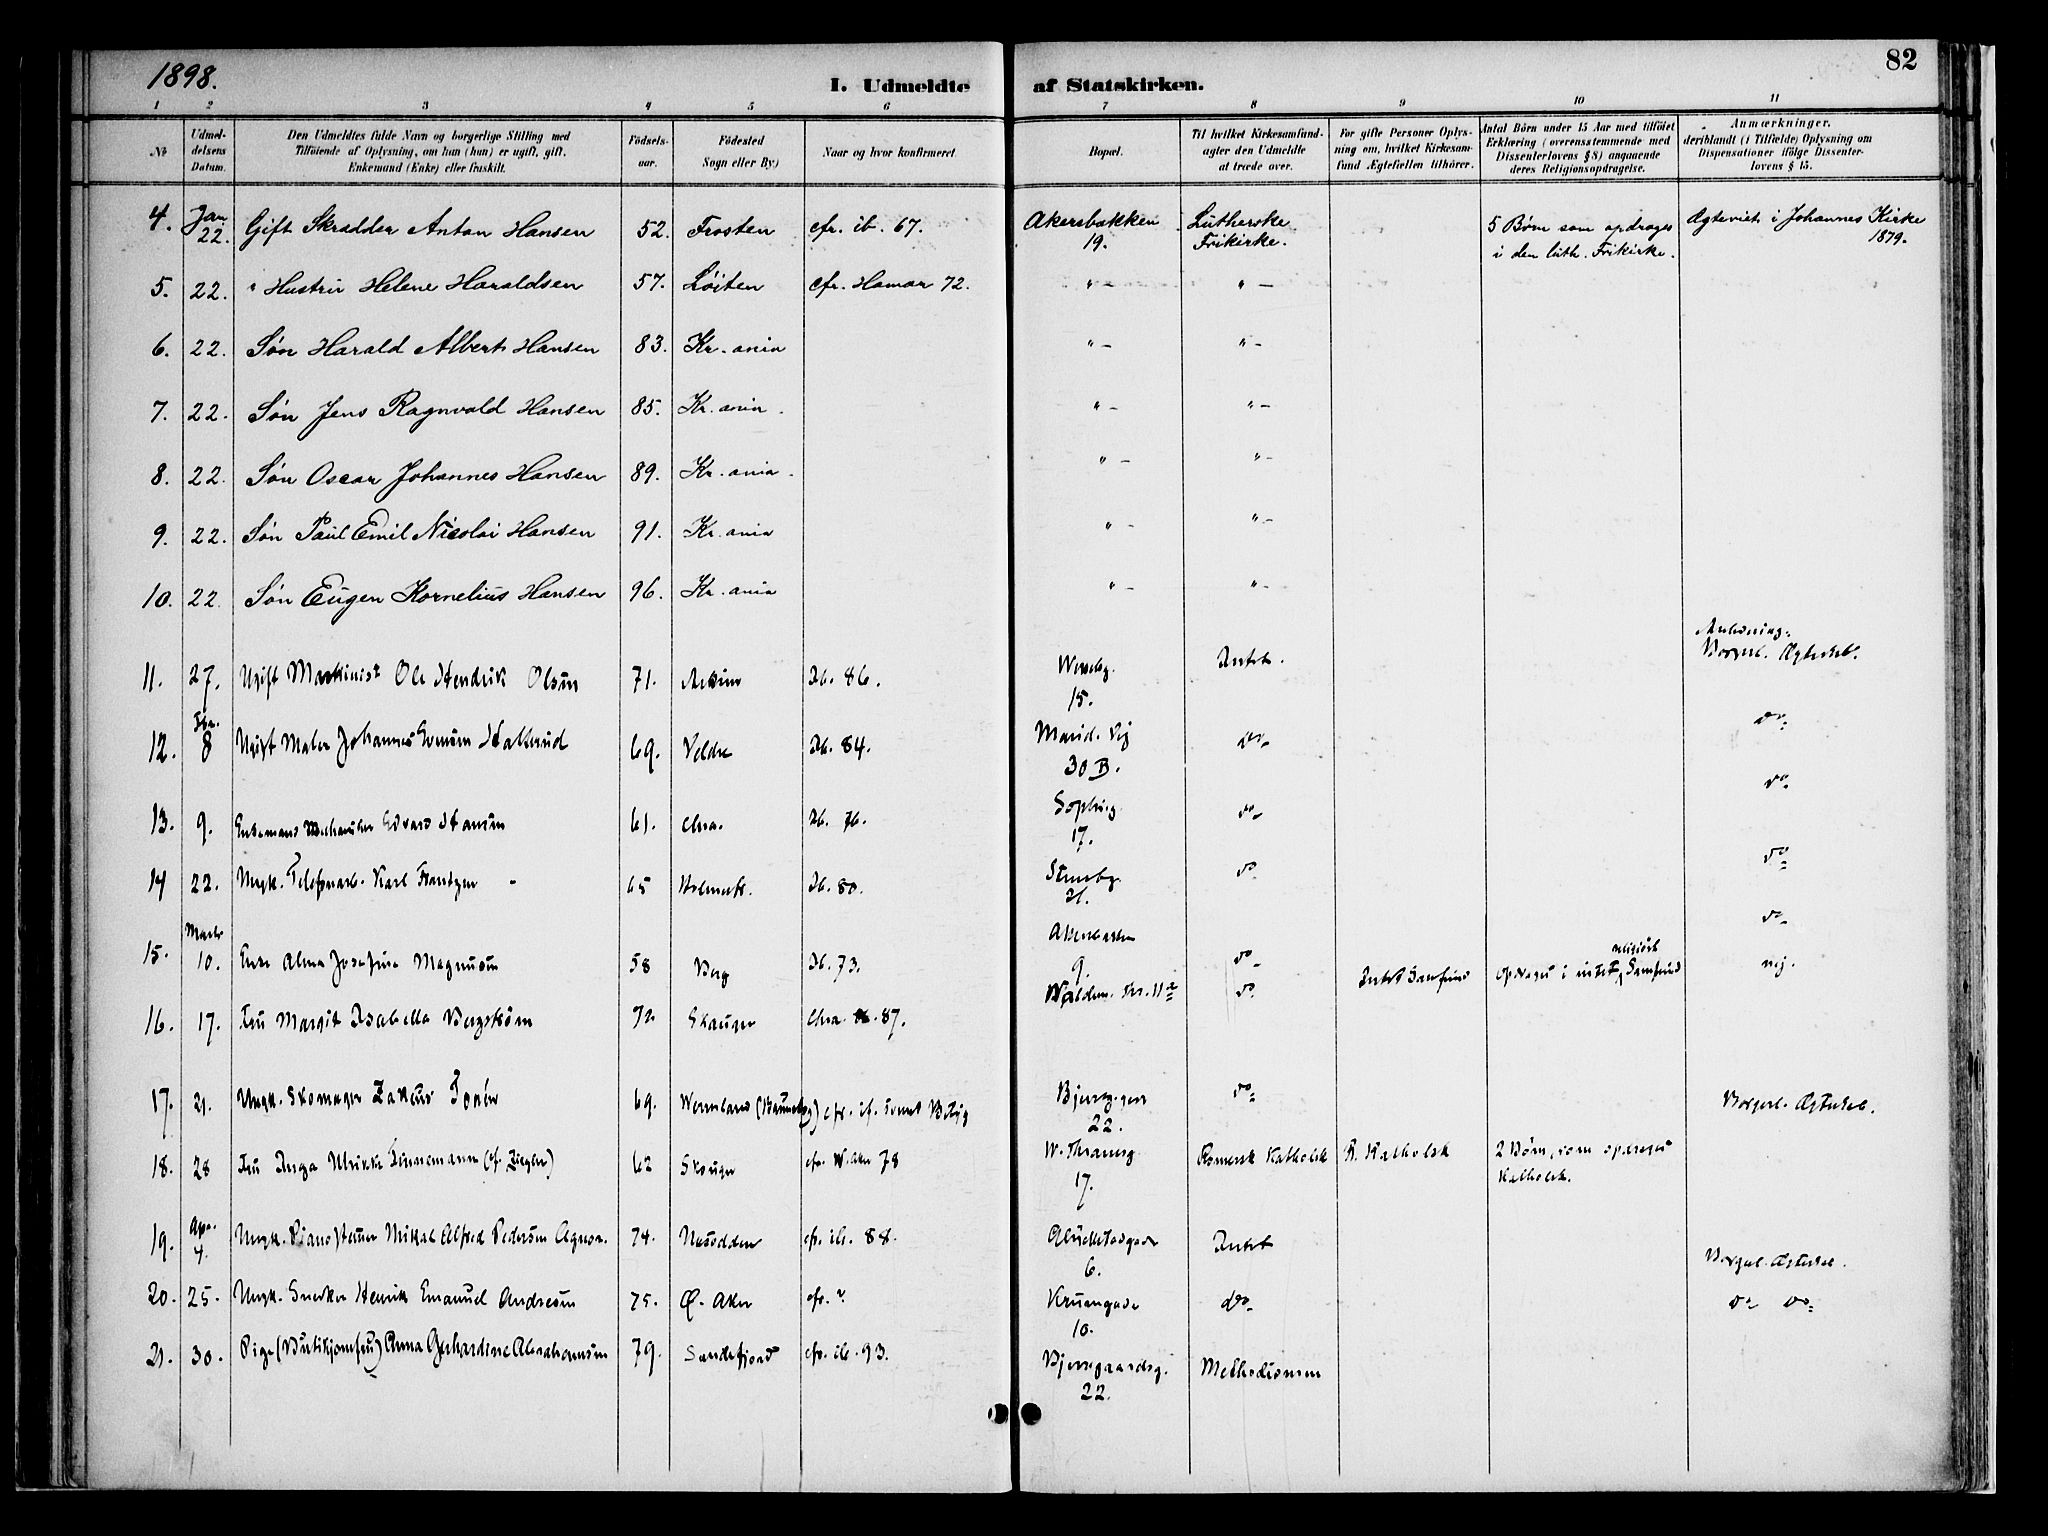 1898.
I. Udmeldte af Statskirken.
82
1 2 3 4 5 6 7 8 9 10 11
No
Udmel-
delsens
Datum.
Den Udmeldtes fulde Navn og borgerlige Stilling med
Tilföiende af Oplysning, om han (hun) er ugift, gift,
Enkemand (Enke) eller fraskilt.
Födsels-
aar.
Födested
Sogn eller By.)
Naar og hvor konfirmeret
Bopæl.
Til hvilket Kirkesamfund-
agter den Udmeldte
at træde over.
For gifte Personer Oplys-
ning om, hvilket Kirkesam-
fund Ægtefællen tilhörer.
Antal Börn under 15 Aar med tilföiet
Erklæring (overensstemmende med
Dissenterlovens § 8) angaaende
deres Religionsopdragelse.
Anmærkninger,
deriblandt (i Tilfælde) Oplysning om
Dispensationer ifölge Dissenter-
lovens § 15.
4. Jan 22. Gift Skrædder Anton Hansen 52. Frosten cfr. ib. 67. Akersbakken 19. Lutherske Frikirke. 5 Børn som opdrages i den luth. Frikirke. Ægteviet i Johannes Kirke 1879.
5. 22. " Hustru Helene Haraldsen 57. Løiten cfr. Hamar 72. " — " —
6. 22. Søn Harald Albert Hansen 83. Kr.ania " — " —
7. 22. Søn Jens Ragnvald Hansen 85. Kr.ania. " — " —
8. 22. Søn Oscar Johannes Hansen 89. Kr.ania. " — " —
9. 22. Søn Paul Emil Nicolai Hansen 91. Kr.ania " — " —
10. 22. Søn Eugen Kornelius Hansen 96. Kr.ania " — " —
11. 27. Ugift Maskinist Ole Hendrik Olsen 71. Ib. 86. 15. Intet. Borgerl. Ægteskab.
12. Fbr. 8 Ugift Maler Johannes 69. Veldre Ib. 84. Marid. Vej 30 B. do do
13. 9. Enkemand Edvard Hansen 61. Chra. Ib. 76. 17. do do
14 22. Ungk. Karl 65 Ib. 80. do do
15. Marts 10. Enke Alma Josefine Magnusen 58 Berg Ib. 73. Akersbakken 9. do do
16. 17. Fru Margit Isabella Bergstrøm 72 Skauger Chra. 87. 11 do Intet Samfund opdrages i intet religiøst Samfund nej.
17. 21. Ungk. Skomager 69. Wermland Bjerreg. 22. do Borgerl. Ægteskab.
18. 28 Fru Inga Ulrikke (f. Ziegler) 62 Skouger cfr. W. Aker 78 W. Thranesg. 17. Romersk Katholsk R. Katholsk 2 Børn, som opdrages Katholsk.
19. Apr. 4. Ungk. Mikal Alfred Pedersen 74. Næsodden cfr. ib. 88. 6. Intet Borgerl. Ægteskab.
20. 25. Ungk. Snedker Henrik Emanuel Andresen 75. Ø. Aker cfr. ? 10. do do do
21. 30. Pige Anna Gerhardine Abrahamsen 79. Sandefjord cfr. ib. 93. Bjerregaardsg. 22. Methodismen